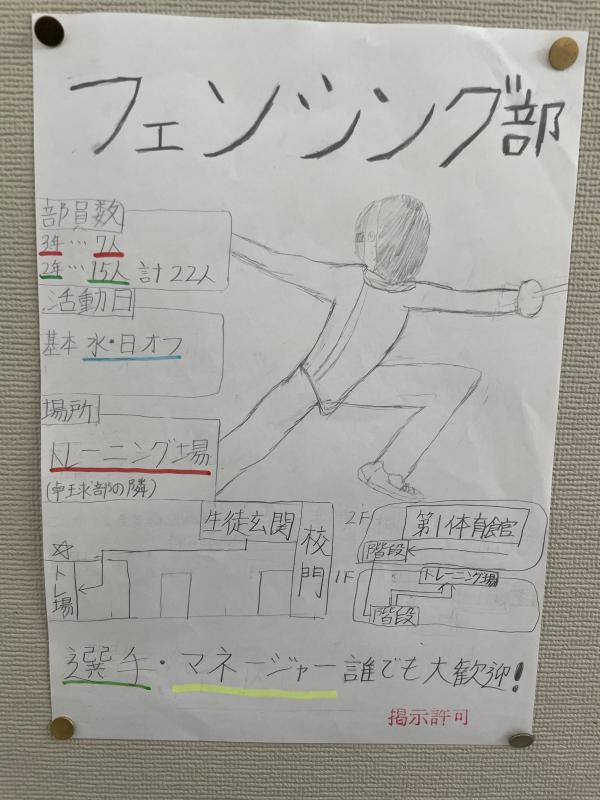 フェンシング部
部員数
3年…7人
2年…15人 計22人
活動日
基本 水・日オフ
場所
トレーニング場
(卓球部の隣)
生徒玄関
校門
☆トレ場
2F
第1体育館
階段
1F
トレーニング場
階段
選手・マネージャー誰でも大歓迎!
掲示許可